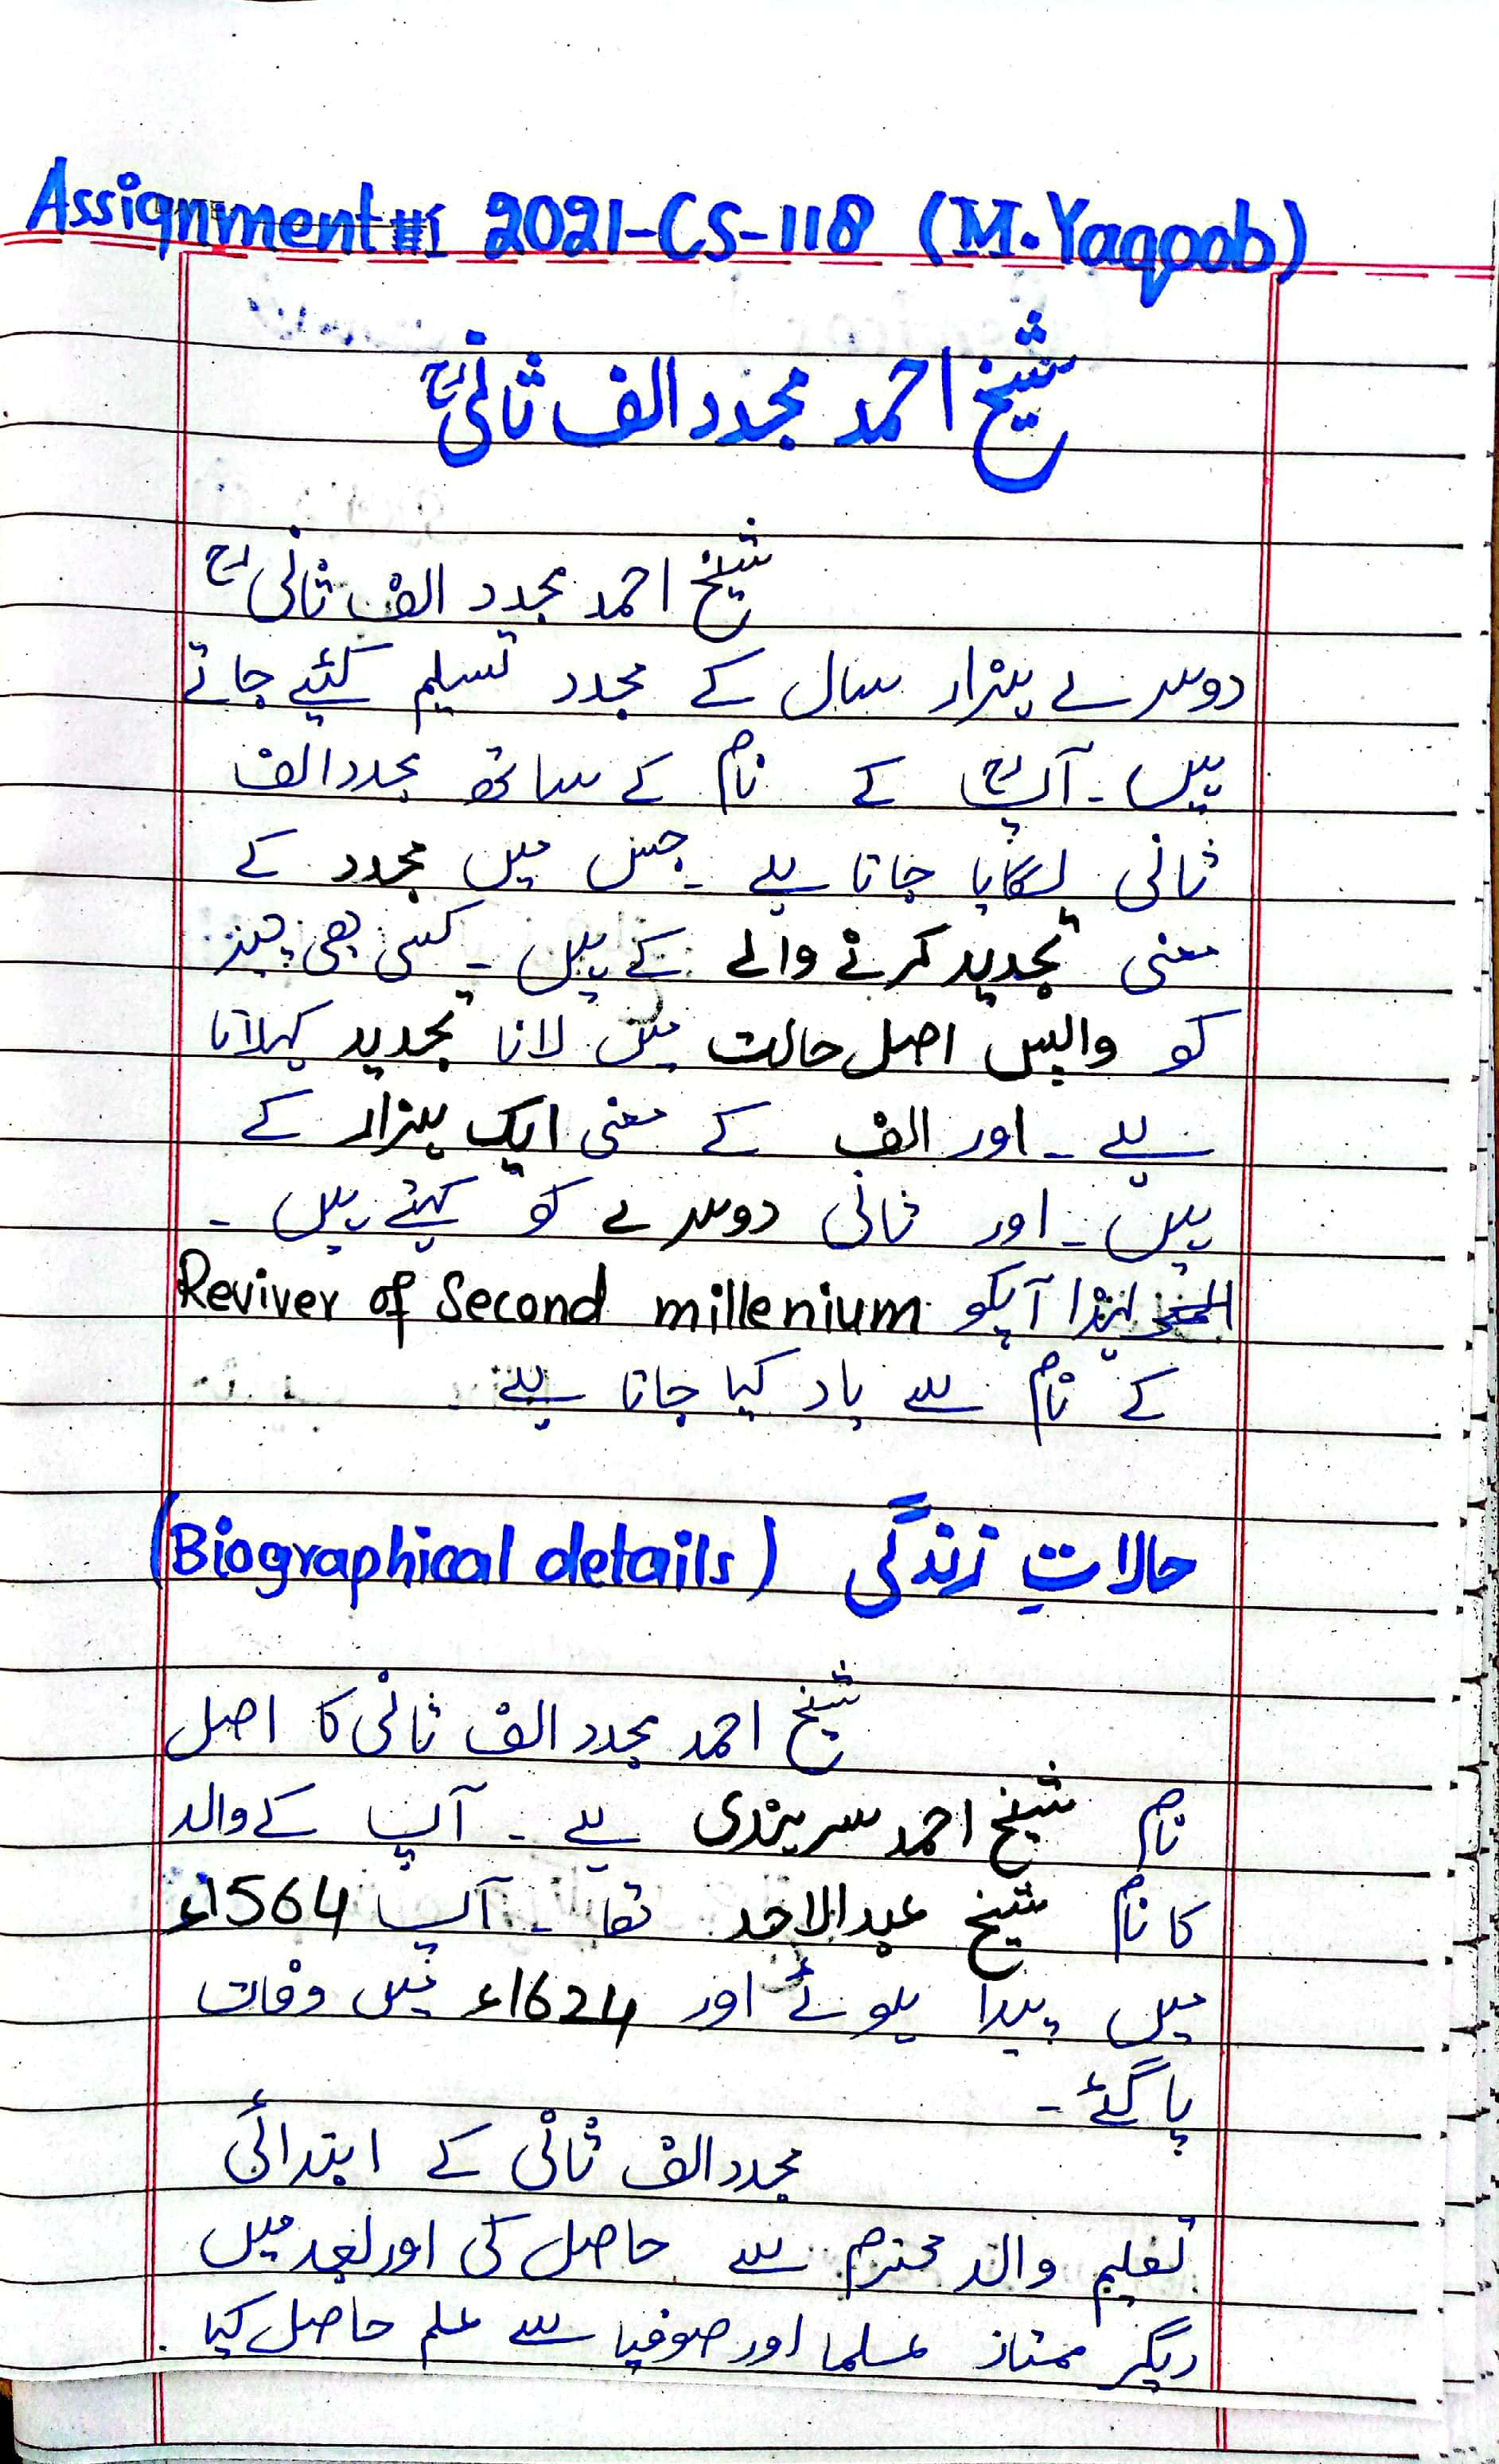 Assignment #1 2021-CS-118 (M.Yaqoob)
شیخ احمد مجدد الف ثانیؒ
شیخ احمد مجدد الف ثانیؒ
دوسرے ہزار سال کے مجدد تسلیم کئیے جاتے
ہیں۔ آپؒ کے نام کے ساتھ مجدد الف
ثانی لگایا جاتا ہے۔ جس میں مجدد کے
معنی تجدید کرنے والے کے ہیں۔ کسی بھی چیز
کو واپس اصل حالت میں لانا تجدید کہلاتا
ہے۔ اور الف کے معنی ایک ہزار کے
ہیں۔ اور ثانی دوسرے کو کہتے ہیں۔
لہٰذا آپکو Reviver of Second millenium
کے نام سے یاد کیا جاتا ہے
حالاتِ زندگی (Biographical details)
شیخ احمد مجدد الف ثانی کا اصل
نام شیخ احمد سرہندی ہے۔ آپ کے والد
کا نام شیخ عبدالاحد تھا۔ آپ 1564ء
میں پیدا ہوئے اور 1624ء میں وفات
پا گئے۔
مجدد الف ثانی کے ابتدائی
تعلیم والد محترم سے حاصل کی اور بعد میں
دیگر ممتاز علما اور صوفیا سے علم حاصل کیا